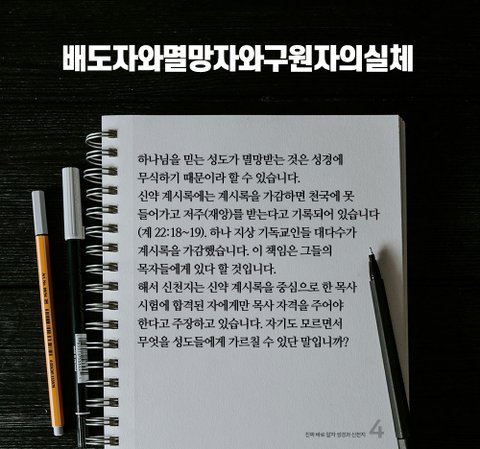 배도자와멸망자와구원자의실체
하나님을 믿는 성도가 멸망받는 것은 성경에
무식하기 때문이라 할 수 있습니다.
신약 계시록에는 계시록을 가감하면 천국에 못
들어가고 저주(재앙)를 받는다고 기록되어 있습니다
(계 22:18~19). 하나 지상 기독교인들 대다수가
계시록을 가감했습니다. 이 책임은 그들의
목자들에게 있다 할 것입니다.
해서 신천지는 신약 계시록을 중심으로 한 목사
시험에 합격된 자에게만 목사 자격을 주어야
한다고 주장하고 있습니다. 자기도 모르면서
무엇을 성도들에게 가르칠 수 있단 말입니까?
진짜 바로 알자 성경과 신천지 4